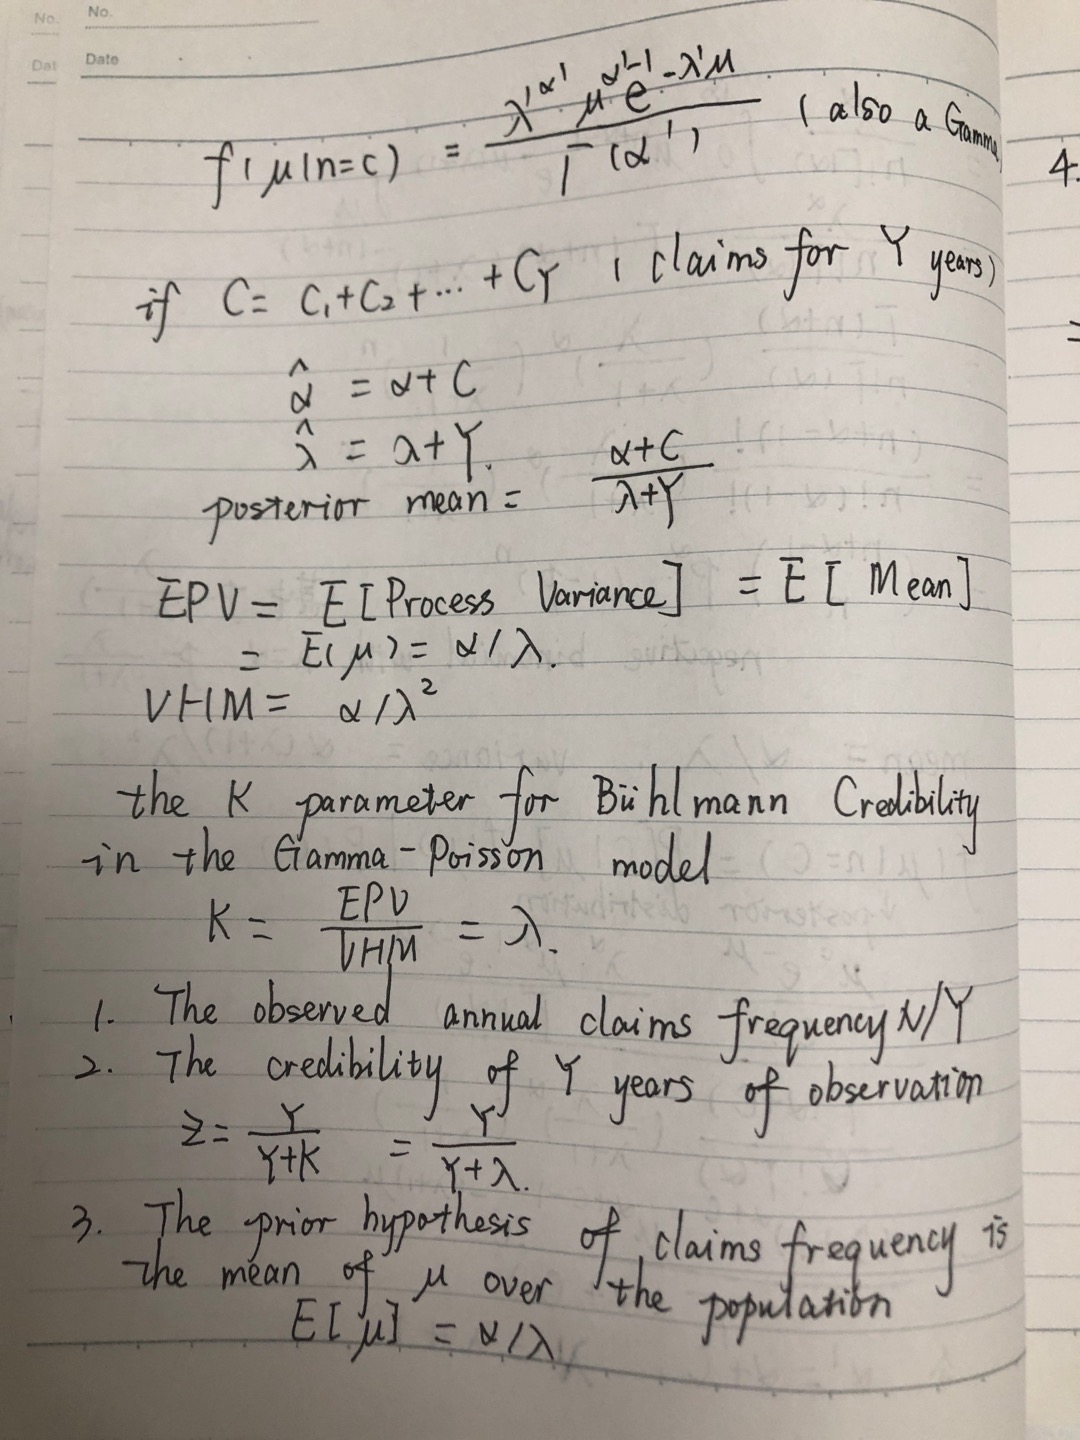 No.
No.
Date
Dat
f(μ|n=c) = λ'^α' μ^α'-1 e^-λ'μ / Γ(α') (also a Gamma
4.
if C = C₁+C₂+...+C_Y (claims for Y years)
α̂ = α+C
λ̂ = λ+Y.
posterior mean = α+C / λ+Y
EPV = E[Process Variance] = E[Mean]
= E(μ) = α/λ.
VHM = α/λ²
the K parameter for Bühlmann Credibility
in the Gamma-Poisson model
K = EPV/VHM = λ.
1. The observed annual claims frequency N/Y
2. The credibility of Y years of observation
Z = Y/Y+K = Y/Y+λ.
3. The prior hypothesis of claims frequency is
the mean of μ over the population
E[μ] = α/λ